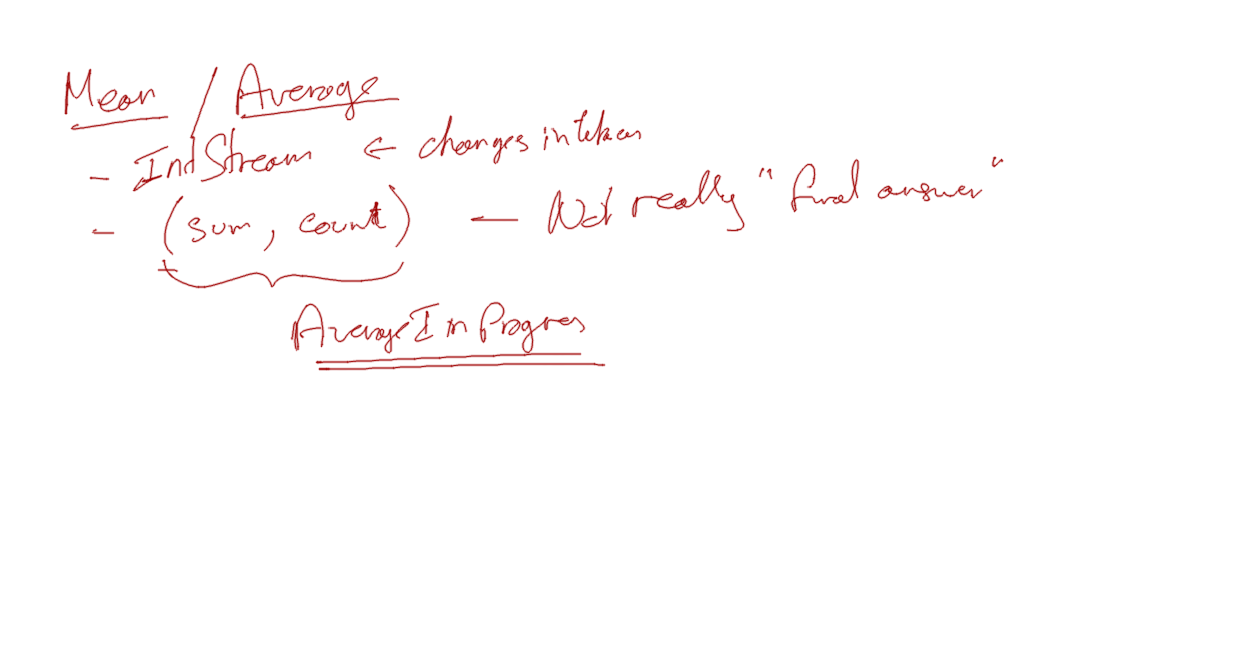 Mean / Average
- IntStream ← changes in taken
- (sum, count) — Not really "final answer"
AverageInProgress